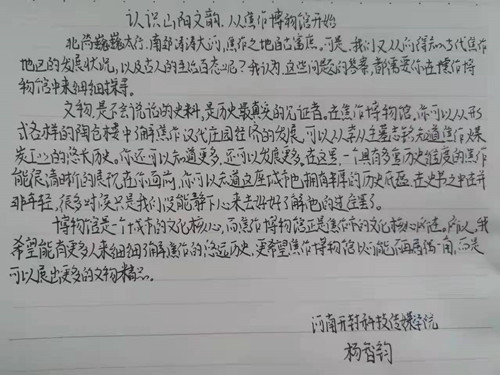 认识山阳文韵，从焦作博物馆开始
北荷巍巍太行，南邻涛涛大河，焦作之地自古富庶。可是，我们又从何得知古代焦作
地区的发展状况，以及古人的生活百态呢？我认为，这些问题的答案，都需要你在焦作博
物馆中来细细探寻。
文物，是不会说话的史料，是历史最真实的见证者。在焦作博物馆，你可以从形
式各样的陶仓楼中了解焦作汉代庄园经济的发展，可以从李从生墓志铭知道焦作煤
炭工业的悠长历史。你还可以知道更多，还可以发展更多。在这里，一个具有多重历史维度的焦作
能很清晰的展现在你面前，你可以知道这座城市也拥有丰厚的历史底蕴，在史书之中也并
非年轻，很多时候只是我们没能静下心来去好好了解他的过往罢了。
博物馆是一个城市的文化核心，而焦作博物馆正是焦作市的文化核心所在。所以，我
希望能有更多人来细细了解焦作的悠远历史，更希望焦作博物馆以后能不再偏居一角，而是
可以展出更多的文物来。
河南开封科技传媒学院
杨香钧